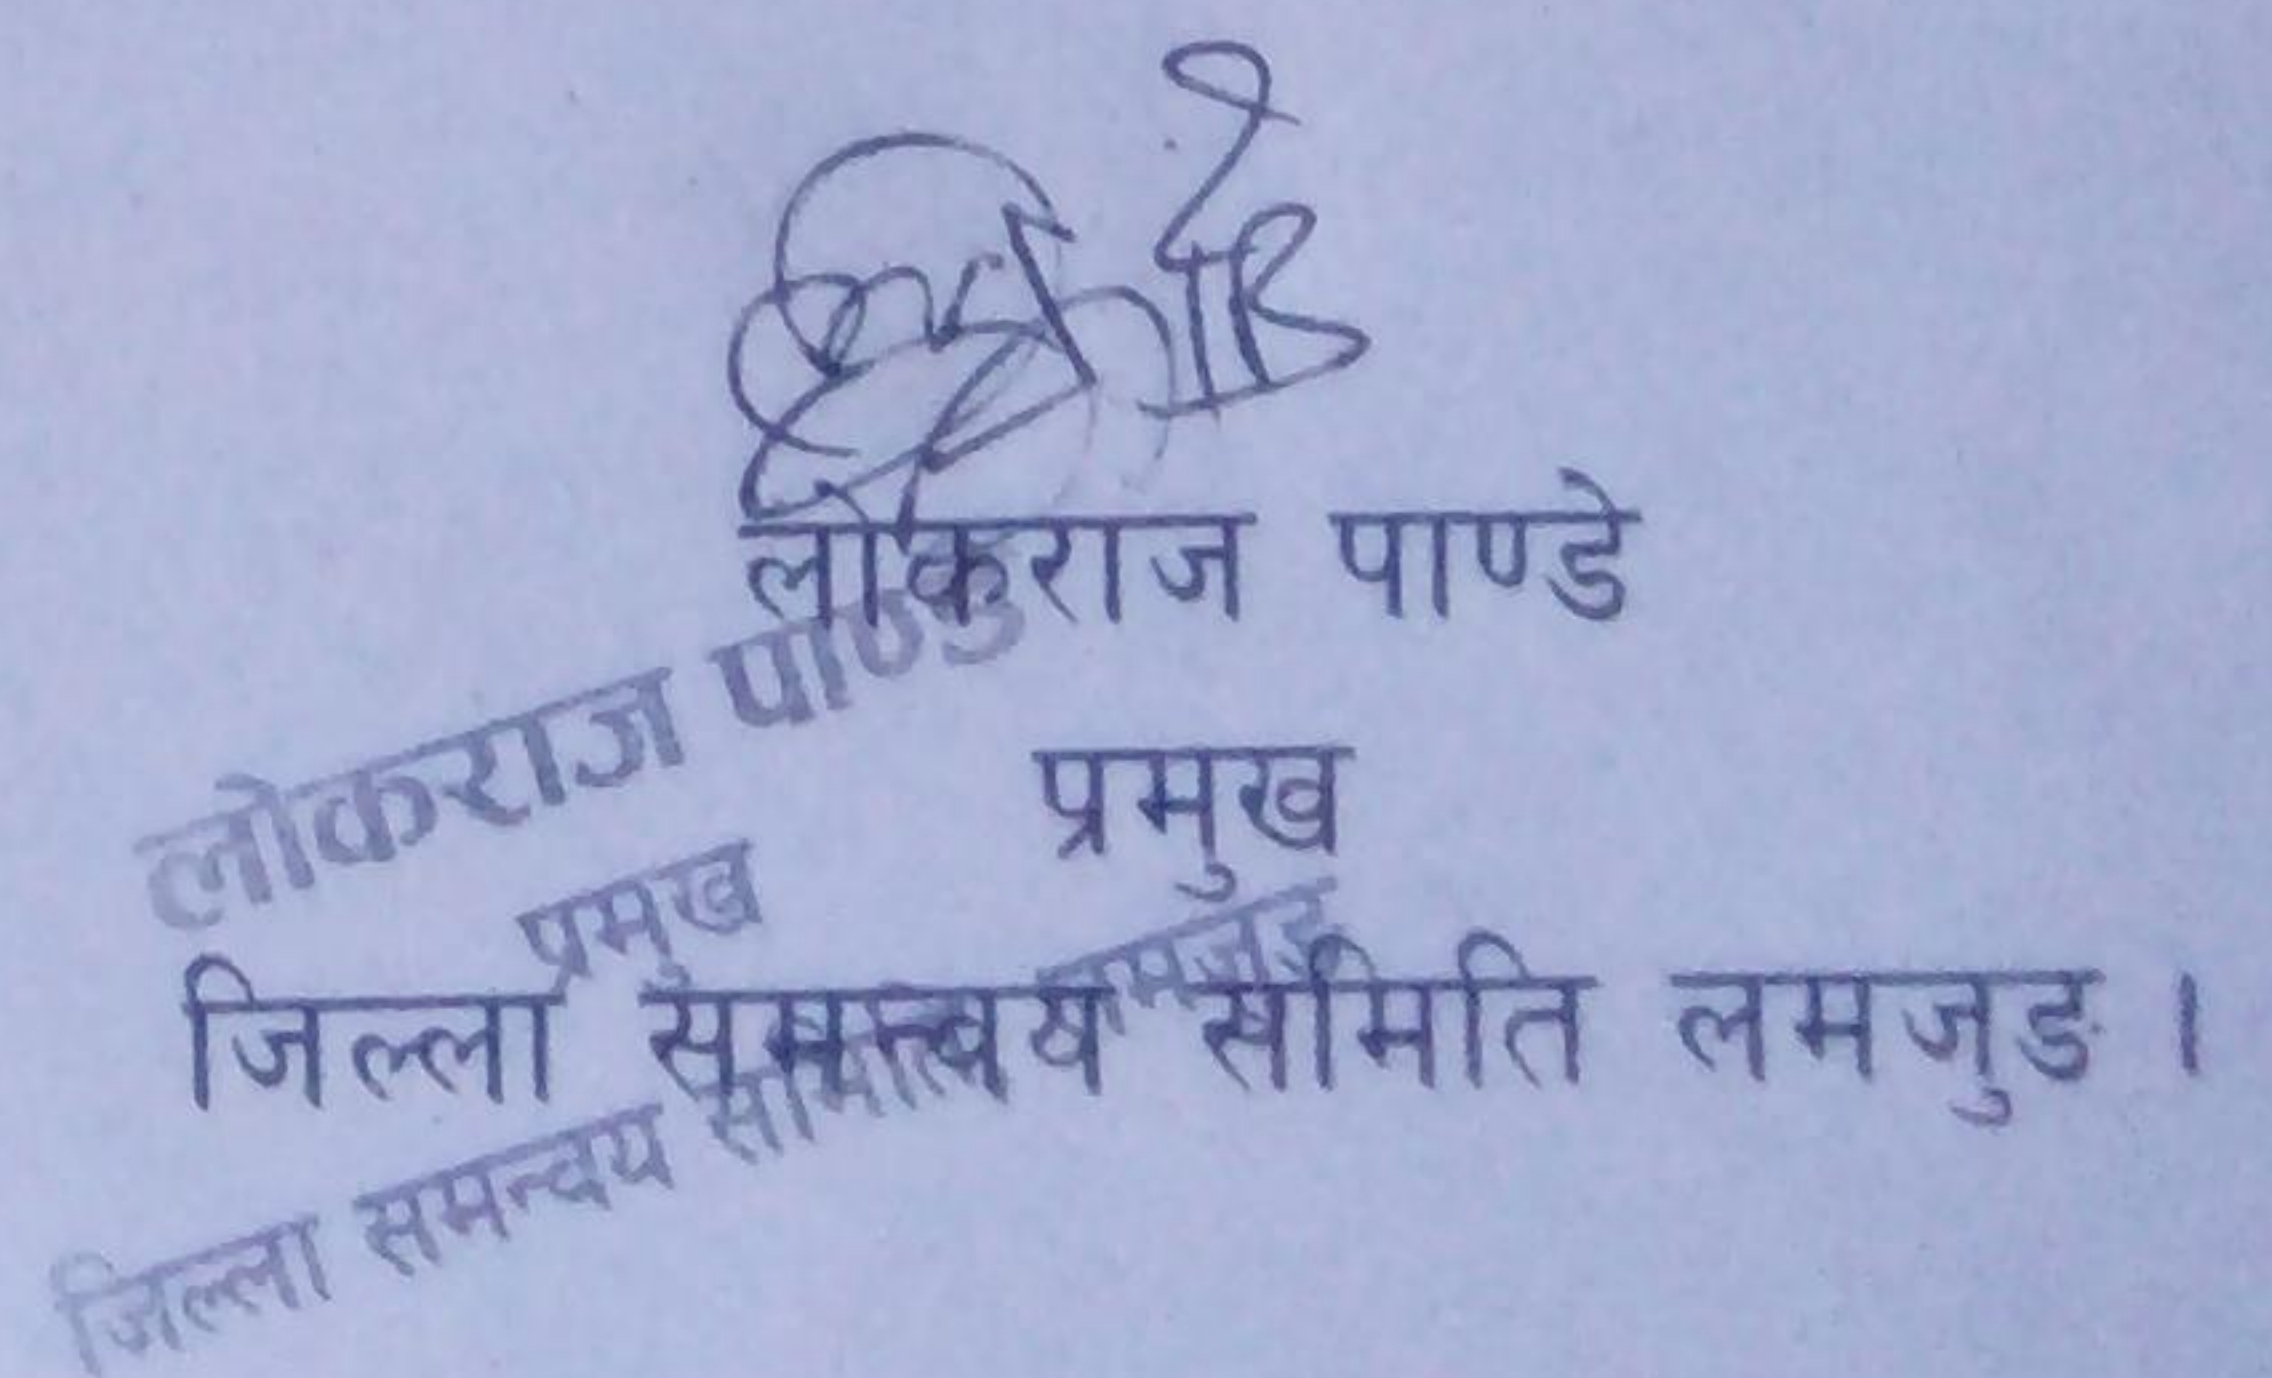 लोकराज पाण्डे
प्रमुख
जिल्ला समन्वय समिति लमजुङ ।
लोकराज पाण्डे
प्रमुख
जिल्ला समन्वय समिति लमजुङ